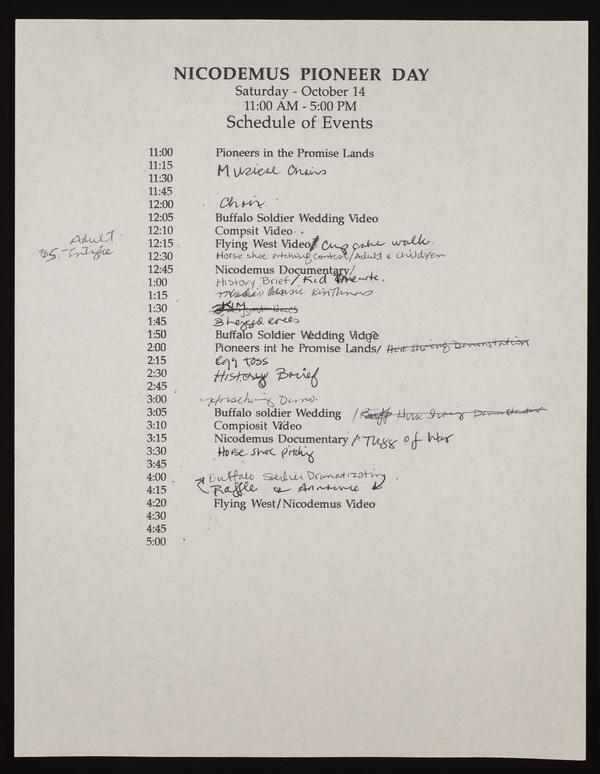 NICODEMUS PIONEER DAY
Saturday - October 14
11:00 AM - 5:00 PM
Schedule of Events
11:00 Pioneers in the Promise Lands
11:15 Musical Chairs
11:30
11:45
12:00 Choir
12:05 Buffalo Soldier Wedding Video
12:10 Compsit Video
Adult
12:15 Flying West Video/ Cup cake walk.
$5.
12:30 Horse shoe pitching contest/Adult & Children
12:45 Nicodemus Documentary/
1:00 History Brief/Kid
1:15
1:30 KIM
1:45 3 legged races
1:50 Buffalo Soldier Wedding Vidoe
2:00 Pioneers int he Promise Lands/ Horse Shoeing Demonstration
2:15 Egg toss
2:30 History Brief
2:45
3:00 Horseshoeing Demo.
3:05 Buffalo soldier Wedding / Horse Shoeing Demonstration
3:10 Compiosit Video
3:15 Nicodemus Documentary / Tugg of War
3:30 Horse shoe pitching
3:45
4:00 Buffalo Soldier Dramatization
4:15 Raffle & Announce
4:20 Flying West/Nicodemus Video
4:30
4:45
5:00